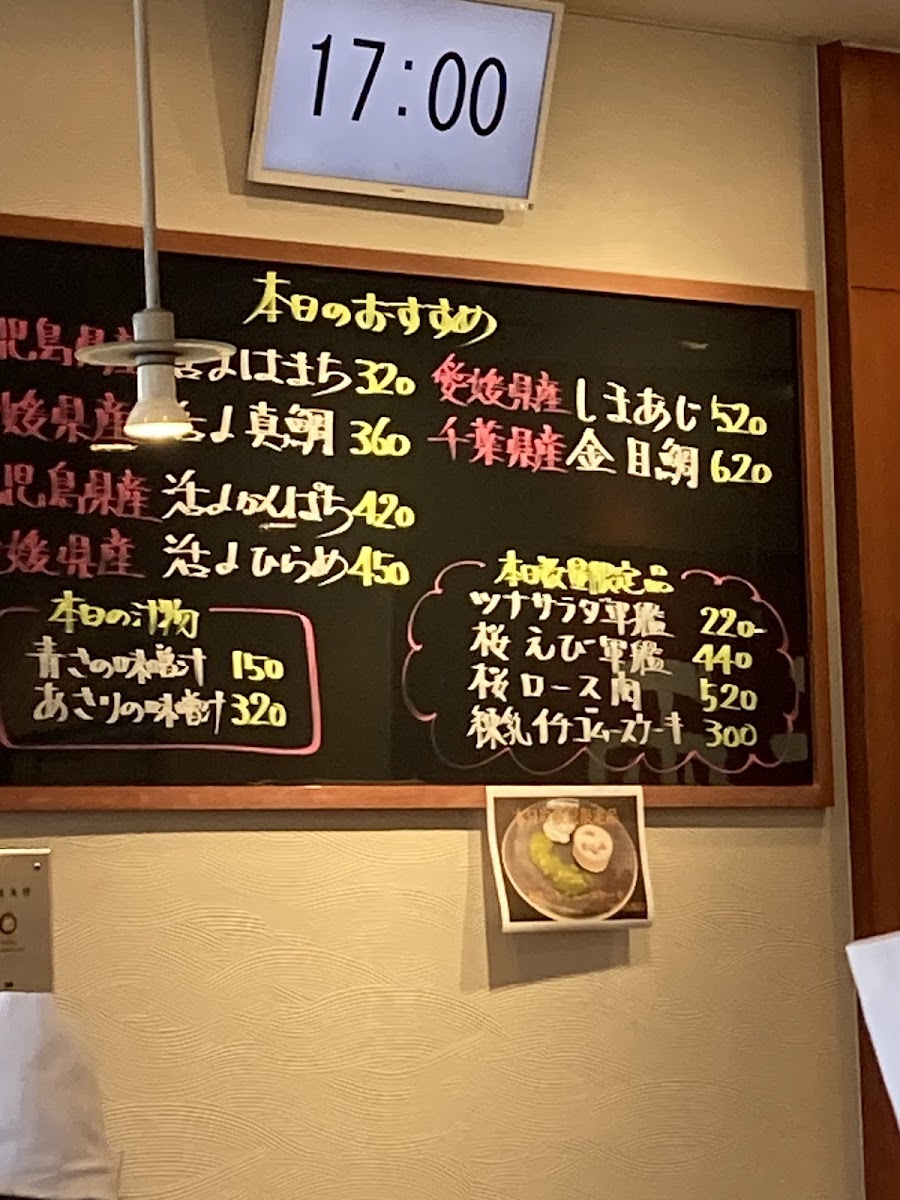 17:00
本日のおすすめ
児島県産 活〆はまち 320
媛県産 活〆真鯛 360
児島県産 活〆かんぱち 420
媛県産 活〆ひらめ 450
愛媛県産 しまあじ 520
千葉県産 金目鯛 620
本日の汁物
青さの味噌汁 150
あさりの味噌汁 320
本日数量限定品
ツナサラダ軍艦 220-
桜えび軍艦 440
桜ロース肉 520
練乳イチゴムースケーキ 300